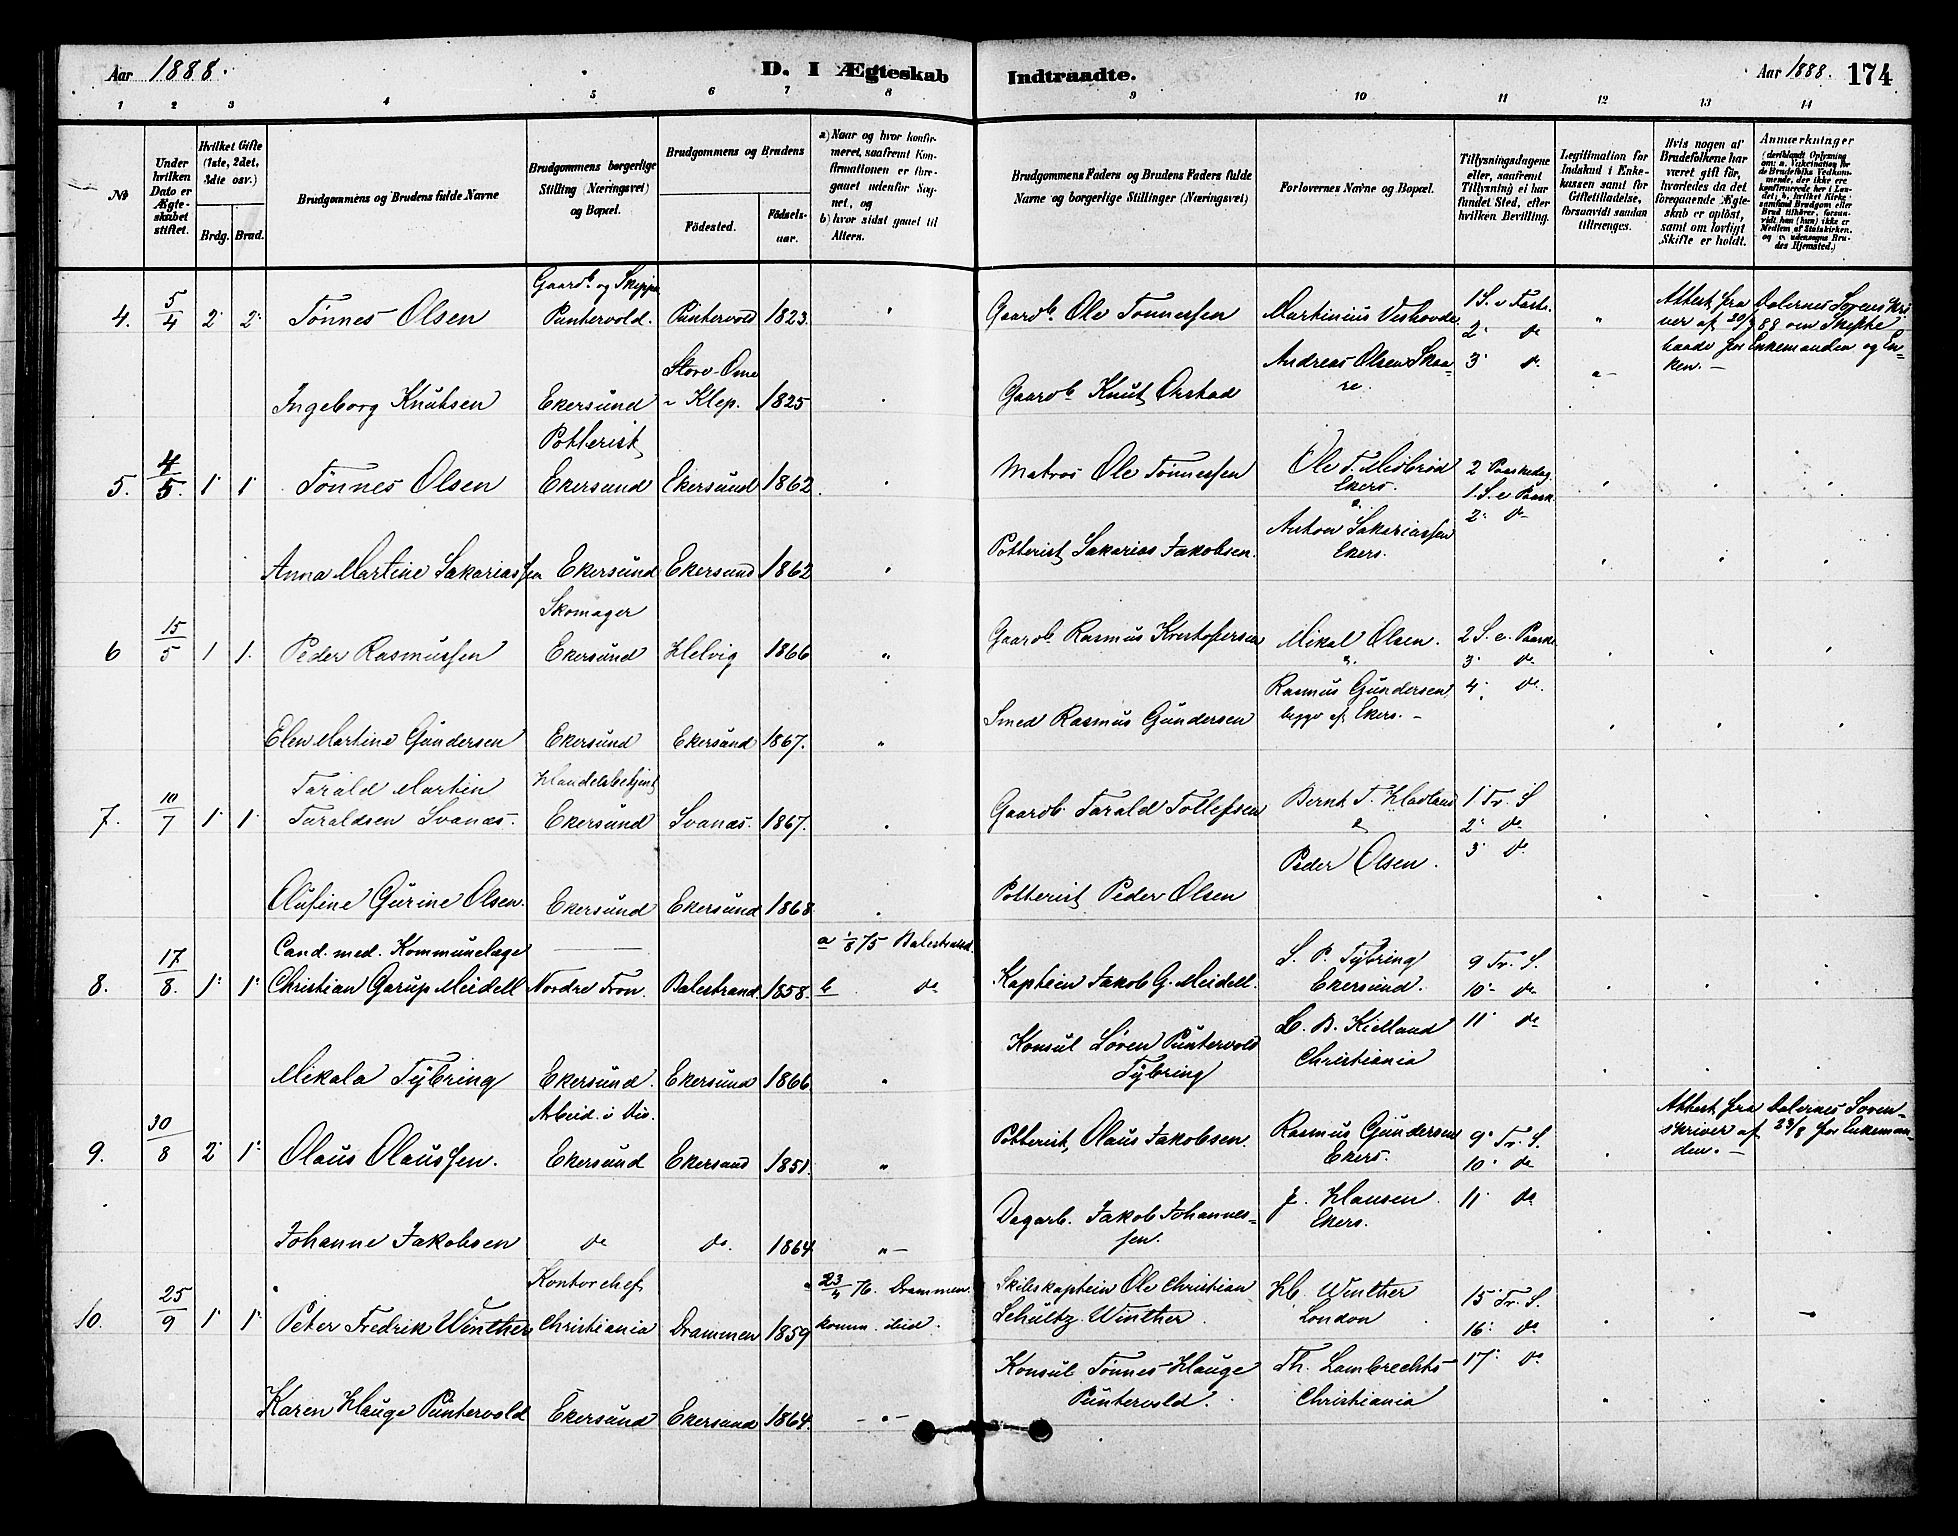 Aar 1888.
D. I Ægteskab
Indtraadte.
Aar 1888.
174
1 2 3 4 5 6 7 8 9 10 11 12 13 14
No
Under hvilken Dato er Ægteskabet stiftet.
Hvilket Gifte (1ste, 2det, 3die osv.)
Brdg. Brud.
Brudgommens og Brudens fulde Navne
Brudgommens borgerlige Stilling (Næringsvei) og Bopæl.
Brudgommens og Brudens
Fødested.
Fødselsaar.
a) Naar og hvor konfirmeret, saafremt Konfirmationen er foregaaet udenfor Sognet, og
b) hvor sidst gaaet til Alters.
Brudgommens Faders og Brudens Faders fulde Navne og borgerlige Stillinger (Næringsvei)
Forlovernes Navne og Bopæl.
Tillysningsdagene eller, saafremt Tillysning ei har fundet Sted, efter hvilken Bevilling.
Legitimation for Indskud i Enkekassen samt for Giftetilladelse, forsaavidt saadan tiltrænges.
Hvis nogen af Brudefolkene har været gift før, hvorledes da det foregaaende Ægteskab er opløst, samt om lovligt Skifte er holdt.
Anmærkninger
4. 5/4 2 2 Tønnes Olsen Gaardb. og Skipper Puntervold. Puntervold 1823. " Gaardb. Ole Tønnessen Martinius Veshovde 1 S. i Faste 2 do 3 do " Attest fra Dalernes Sorenskriver af 20/3 88 om Skifte baade for Enkemanden og Enken.
Ingeborg Knutsen Ekersund Store-Ome Klep. 1825 Gaardb. Knut Orstad Andreas Olsen Skaare.
5. 4/5. 1 1 Tønnes Olsen Potterist Ekersund Ekersund 1862. Matros Ole Tønnessen Ole T. Mosbrød Ekers. 2 Paaskedag 1. S. e Paask. 2 do
Anna Martine Sakariassen Ekersund Ekersund 1862 Potterist Sakarias Jakobsen. Anton Sakariassen Ekers.
6 15/5 1 1. Peder Rasmussen Skomager Ekersund Helvig 1866 " Gaardb. Rasmus Kristofersen Mikal Olsen. 2 S. e. Paaske 3 do 4 do
Elen Martine Gundersen Ekersund Ekersund 1867. " Smed Rasmus Gundersen Rasmus Gundersen begge af Ekers.
7. 10/7 1 1 Tarald Martin Taraldsen Svanæs. Handelsbetjent Ekersund Svanæs. 1867. Gaardb. Tarald Tollefsen Bernt T. Hadland & 1 Tr. S 2 do 3 do
Olufine Gurine Olsen. Ekersund Ekersund 1868 Potterist Peder Olsen Peder Olsen.
8. 17/8. 1 1 Cand. med. Kommunelæge Christian Garup Meidell Nordre Fron. Balestrand 1858. a 1/8 75 Balestrand. b do Kaptein Jakob G. Meidell. S. P. Tybring Ekersund. 9 Tr. S. 10 do 11 do
Mikala Tybring Ekersund. Ekersund 1866 " Konsul Søren Puntervold Tybring B. Kielland Christiania
9. 30/8 2 1 Olaus Olaussen. Arbeid. Ekersund Ekersund 1851. " Potterist Olaus Jakobsen. Rasmus Gundersen Ekers. 9 Tr. S. 10 do 11 do Attest fra Dalernes Sorenskriver af 23/8 for Enkemanden.
Johanne Jakobsen do do. 1864 " Dagarb. Jakob Johannessen. J. Hansen Ekers.
10. 25/9 1 1 Peter Fredrik Winther Kontorchef Christiania Drammen 1859 23/4 76. Drammen. komm. ibid. Skibskaptein Ole Christian Schultz Winther. Winther London 15 Tr. S. 16 do 17 do
Karen Hauge Puntervold Ekersund Ekersund 1864. " Konsul Tønnes Hauge Puntervold. Th. Lambrechts Christiania